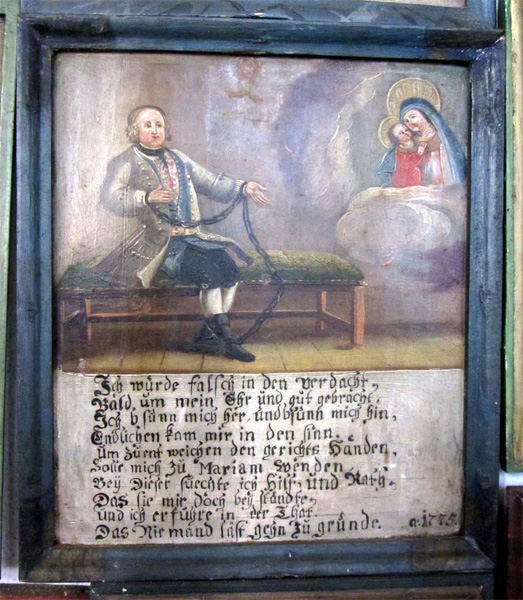 Ich würde falsch in den verdacht,
Bald um mein Ehr und gut gebracht.
Ich bsänn mich her, und bsünn mich hin,
Endlichen kam mir in den sinn,
Um zu ent weichen den gerichts Händen,
Solle mich zu Mariam wenden,
Bey Dieser suechte ich Hilf, und Rath,
Das sie mir doch bey standte,
und ich erführe in der That.
Das Niemand läst gehn zu gründe. a. 1775.